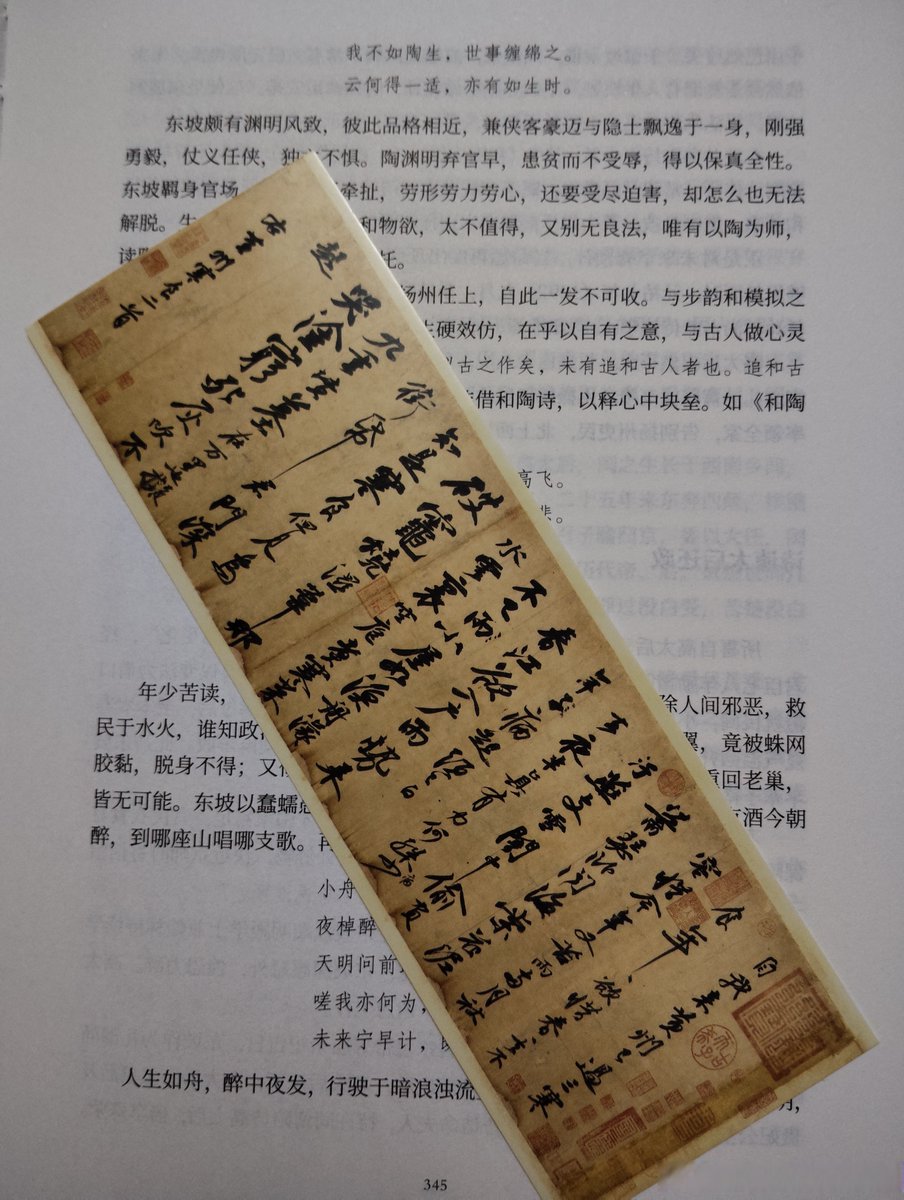 我不如陶生，世事缠绵之。
云何得一适，亦有如生时。
东坡颇有渊明风致，彼此品格相近，兼侠客豪迈与隐士飘逸于一身，刚强
勇毅，仗义任侠，独立不惧。陶渊明弃官早，患贫而不受辱，得以保真全性。
东坡羁身官场，牵扯，劳形劳力劳心，还要受尽迫害，却怎么也无法
解脱。生和物欲，太不值得，又别无良法，唯有以陶为师，
读陶托。
扬州任上，自此一发不可收。与步韵和模拟之
生硬效仿，在乎以自有之意，与古人做心灵
古之作矣，未有追和古人者也。追和古
借和陶诗，以释心中块垒。如《和陶
高飞。
年少苦读，除人间邪恶，救
民于水火，谁知政翼，竟被蛛网
胶黏，脱身不得；又重回老巢，
皆无可能。东坡以蠢蠕酒今朝
醉，到哪座山唱哪支歌。再
小舟
夜棹醉
天明问前
嗟我亦何为，
未来宁早计，
人生如舟，醉中夜发，行驶于暗浪浊流
345
自我來黃州已過三寒
食年年欲惜春春去不
容惜今年又苦雨兩月秋
蕭瑟卧聞海棠花泥
汙燕支雪闇中偷負
去夜半真有力何殊少
年子病起頭已白
春江欲入戶雨勢來
不已雨小屋如漁舟濛濛
水雲裏空庖煮寒菜
破竈燒濕葦那
知是寒食但見烏
銜帋君門深
九重墳墓在万里也擬
哭塗窮死灰吹不
起
右黃州寒食二首